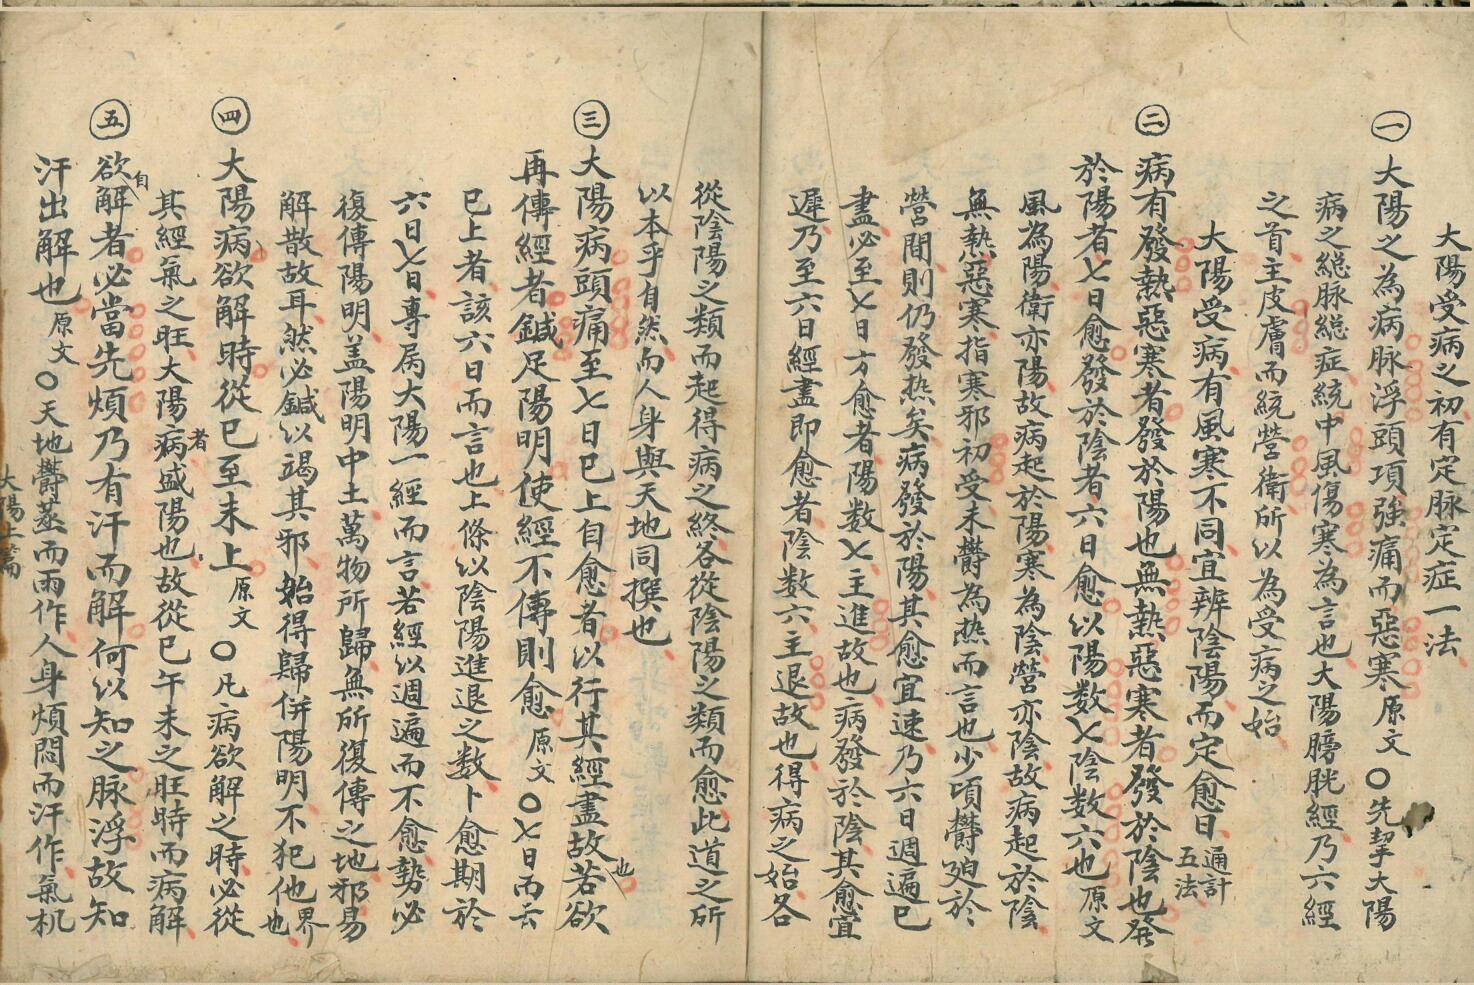 大陽受病之初有定脉定症一法
㊀大陽之為病脉浮頭項強痛而惡寒原文○先挈大陽
病之緫脉緫症統中風傷寒為言也大陽膀胱經乃六經
之首主皮膚而統營衛所以為受病之始
大陽受病有風寒不同宜辨陰陽而定愈日通計五法
㊁病有發熱惡寒者發於陽也無熱惡寒者發於陰也發
於陽者七日愈發於陰者六日愈以陽數七陰数六也原文
風為陽衛亦陽故病起於陽寒為陰營亦陰故病起於陰
無熱惡寒指寒邪初受未鬱為热而言也少頃鬱廹於
營間則仍發热矣病發於陽其愈宜速乃六日週遍已
盡必至七日方愈者陽数七主進故也病發於陰其愈宜
遲乃至六日經盡即愈者陰数六主退故也得病之始各
從陰陽之類而起得病之終各從陰陽之類而愈此道之所
以本乎自然而人身與天地同撰也
㊂大陽病頭痛至七日已上自愈者以行其經盡故也若欲
再傳經者鍼足陽明使經不傳則愈原文○七日而云
已上者該六日而言也上條以陰陽進退之数卜愈期於
六日七日專属大陽一經而言若經以週遍而不愈勢必
復傳陽明盖陽明中土萬物所歸無所復傳之地邪易
解散故耳然必鍼以竭其邪始得歸併陽明不犯他界也
㊃大陽病欲解時從巳至未上原文○凡病欲解之時必從
其經氣之旺大陽病者盛陽也故從巳午未之旺時而病解
㊄欲自解者必當先煩乃有汗而解何以知之脉浮故知
汗出解也原文○天地鬱蒸而雨作人身煩悶而汗作氣机
大陽上篇